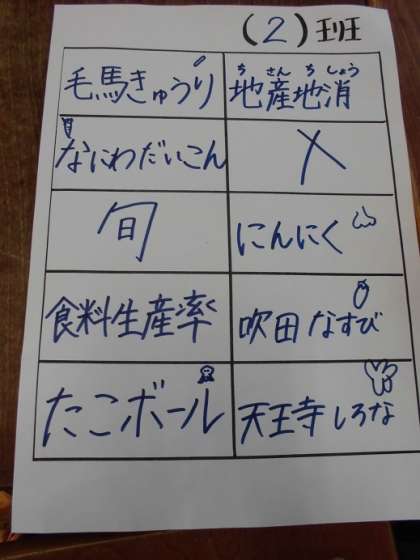 (2)班
毛馬きゅうり
ち さん ち しょう
地産地消
なにわだいこん
旬
にんにく
食料生産率
吹田なすび
たこボール
天王寺しろな